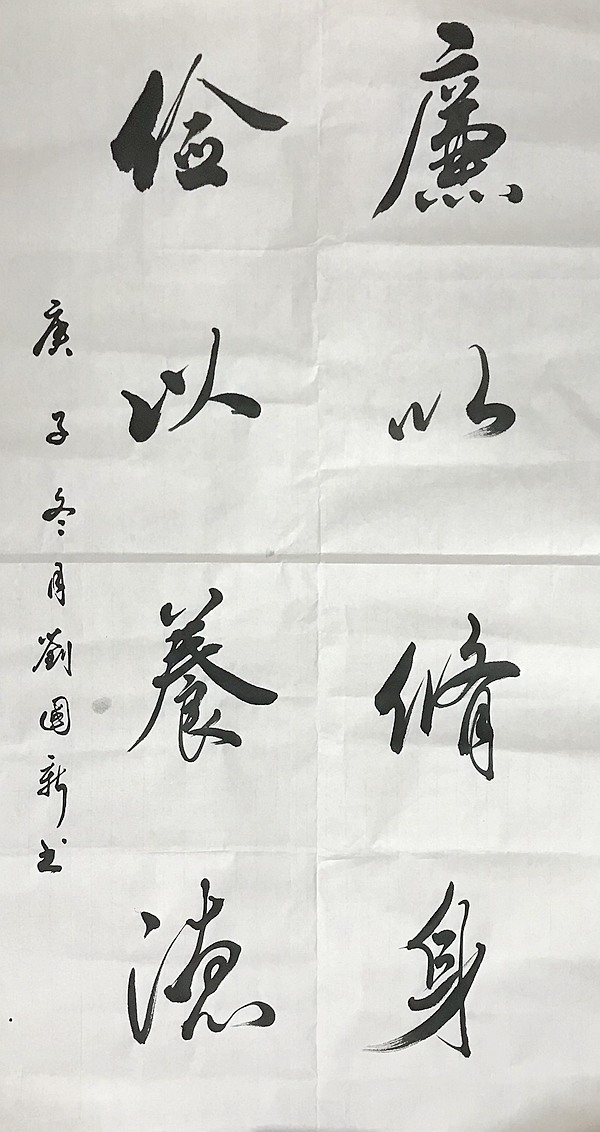 廉以脩身
儉以養德
庚子冬月劉國新书